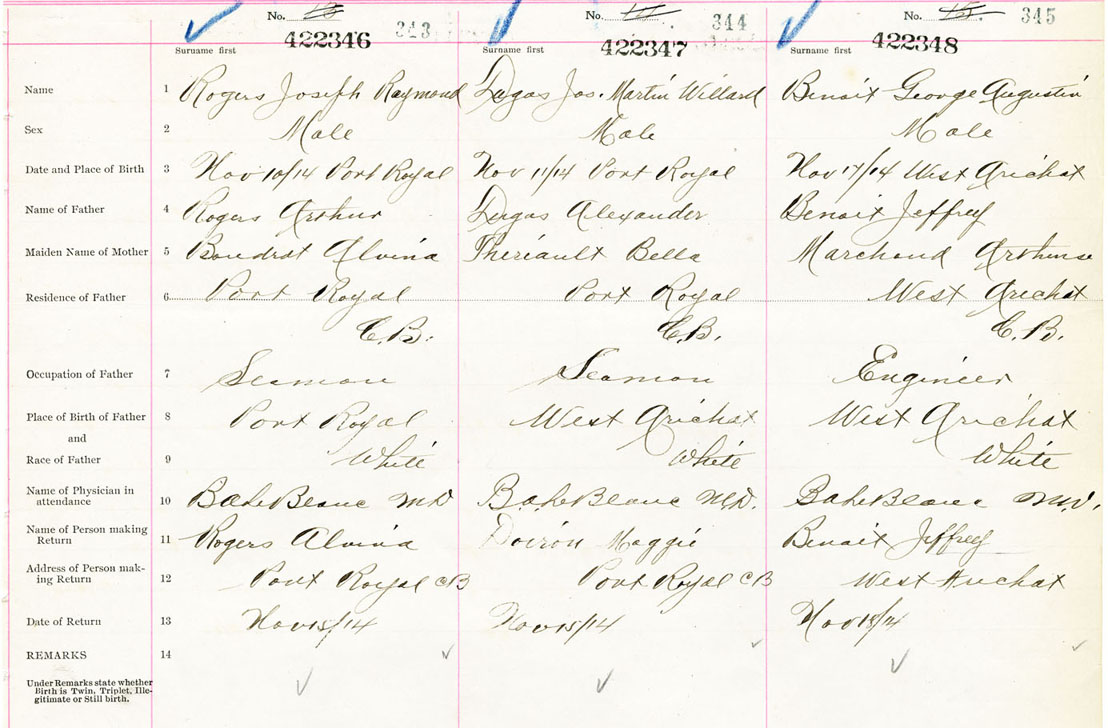 No. 343 No. 344 No. 345
422346 422347 422348
Surname first Surname first Surname first
Name 1 Rogers Joseph Raymond Dugas Jos. Martin Willard Benoit George Augustin
Sex 2 Male Male Male
Date and Place of Birth 3 Nov 10/14 Port Royal Nov 11/14 Port Royal Nov 17/14 West Arichat
Name of Father 4 Rogers Arthur Dugas Alexander Benoit Jeffrey
Maiden Name of Mother 5 Boudrot Alvina Theriault Bella Marchand
Residence of Father 6 Port Royal Port Royal West Arichat
C.B. C.B. C.B.
Occupation of Father 7 Seaman Seaman Engineer
Place of Birth of Father 8 Port Royal West Arichat West Arichat
and
Race of Father 9 White White White
Name of Physician in
attendance 10 BaLeBlanc M.D. BaLeBlanc M.D. BaLeBlanc M.D.
Name of Person making
Return 11 Rogers Alvina Doiron Maggie Benoit Jeffrey
Address of Person mak-
ing Return 12 Port Royal CB Port Royal CB West Arichat
Date of Return 13 Nov 15/14 Nov 15/14 Nov 18/14
REMARKS 14
Under Remarks state whether
Birth is Twin, Triplet, Ille-
gitimate or Still birth.